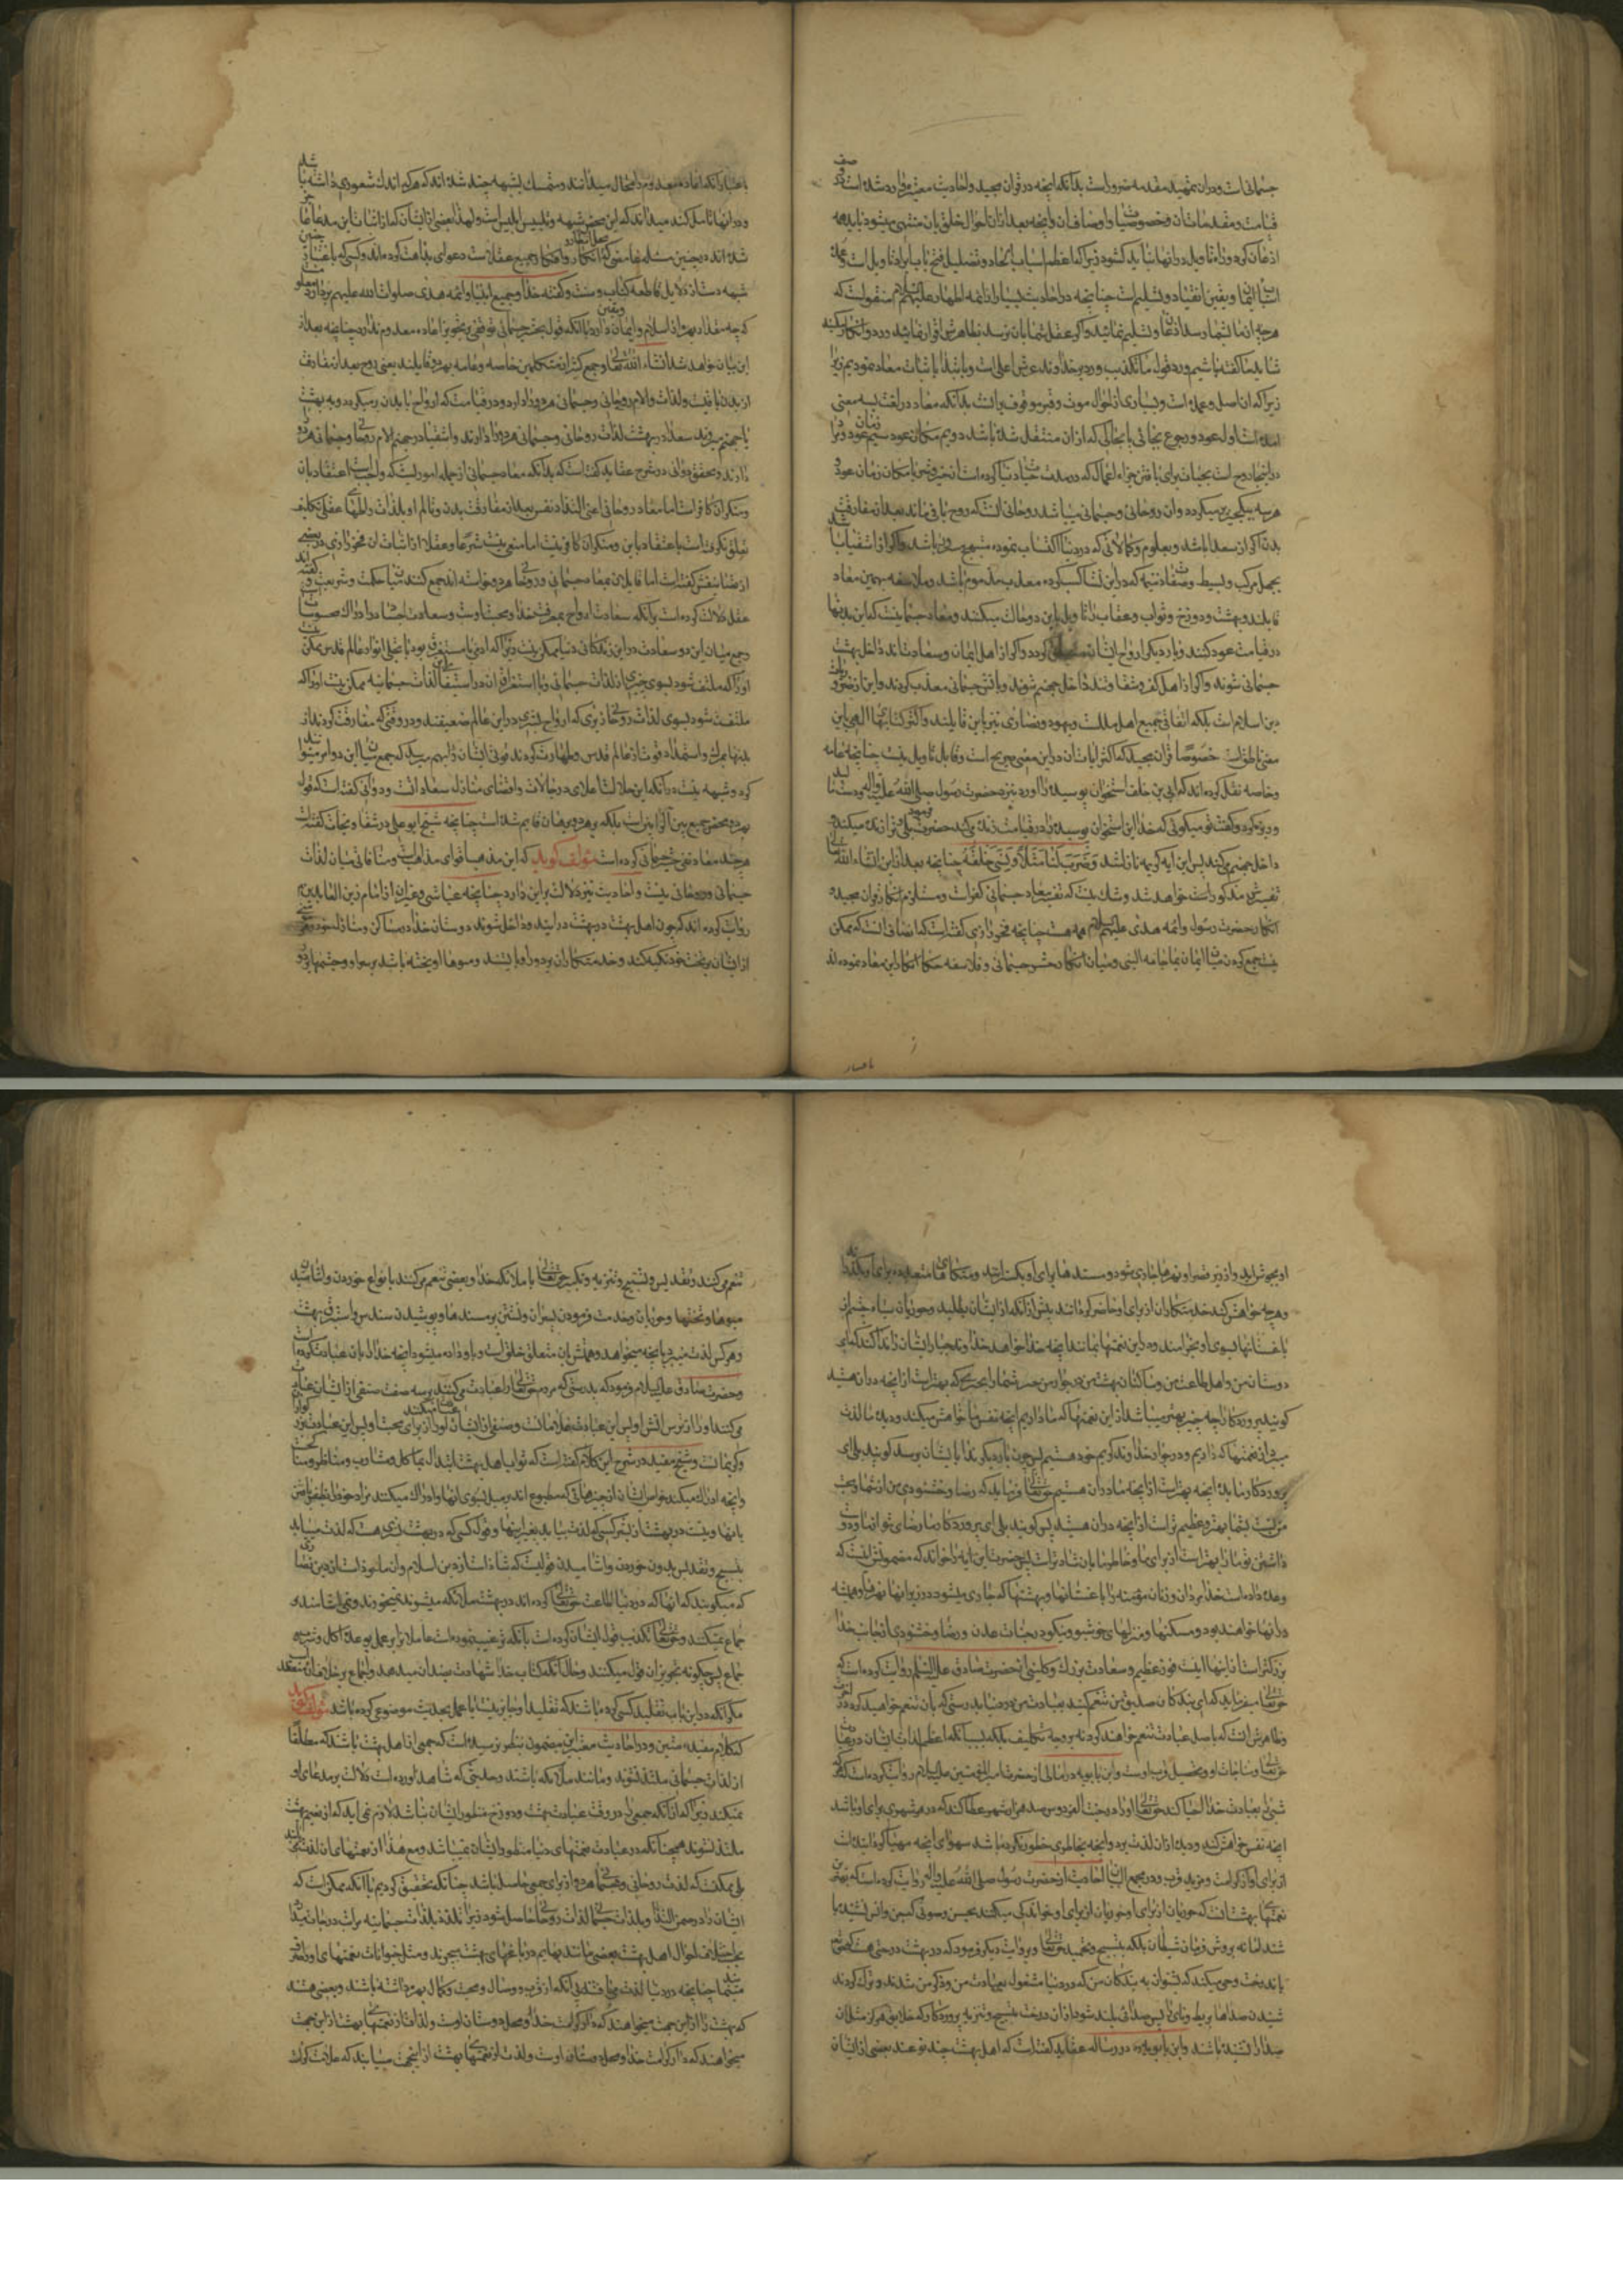 جسمانی است و در ان تمهید مقدمه ضرور است بدانکه انچه در قران مجید و احادیث معتبره وارد شده است در صفت
قیامت و مقدمات ان و خصوصیات و اوصاف ان و انچه بعد از ان احوال خلق بان منتهی میشود باید همه
اذعان کرد و راه تاویل در انها نباید گشود زیرا که اعظم اسباب الحاد و تضلیل فتح باب
ایمان و یقین انقیاد و تسلیم است چنانچه در احادیث بسیار از ائمه اطهار علیهم السلام منقول است که
هرچه از ما بشما رسد اذعان و تسلیم نمائید و اگر عقل شما بان نرسد
شاید ما گفته باشیم و رد قول ما تکذیب و رد بر خداوند عرش اعلی است
زیرا که ان اصل و عمده است و بسیاری از احوال موت و قبر موقوف بر انست بدانکه معاد در لغت بسه معنی
امده است اول عود و رجوع بجائی یا بحالی که از ان منتقل شده باشد دویم مکان عود سیم زمان عود
در اینجا روح است بحیات برای یافتن جزاء اعمالی که در مدت حیات دنیا کرده است
هر سه بیکچیز برمیگردد و ان روحانی و جسمانی میباشد روحانی انست که روح باقی ماند بعد از مفارقت
بدن اگر از سعدا باشد و بعلوم و کمالاتی که در دنیا اکتساب نموده
بجهل مرکب و بسیط و صفات ذمیمه که در این نشأ کسب کرده معذب
قایلند و بهشت و دوزخ و ثواب و عقاب را تاویل باین دو حالت میکنند و معاد جسمانی انست که این بدنها
در قیامت عود کنند و بار دیگر ارواح بایشان
جسمانی شوند و اگر از اهل کفر و شقاوتند داخل جهنم شوند و باتش جسمانی معذب گردند و این از ضروریات
دین اسلام است بلکه اتفاقی جمیع اهل ملل است و یهود و نصاری نیز باین قایلند و اکثر کتابهای الهی باین
معنی ناطق است خصوصا قران مجید که اکثر ایات ان در این معنی صریح است و قابل تاویل نیست چنانچه عامه
و خاصه نقل کرده اند که ابی بن خلف استخوان پوسیده را اورد نزد حضرت رسول صلی الله علیه واله
و ریزه کرد و گفت تو میگوئی که خدا این استخوان پوسیده را در قیامت زنده میکند حضرت فرمود بلی ترا زنده میکند و
داخل جهنم میکند پس این آیه کریمه نازل شد وَضَرَبَ لَنَا مَثَلًا وَنَسِیَ خَلْقَهُ چنانچه بعد از این انشاء الله تعالی
تفسیرش مذکور خواهد شد و شک نیست که نفی معاد جسمانی کفر است و مستلزم انکار قران مجید
انکار حضرت رسول و ائمه هدی علیهم السلام همه هست چنانچه فخر رازی گفته است که انصاف انست که ممکن
نیست جمع کردن میان ایمان بما جاء به النبی و میان انکار حشر جسمانی و فلاسفه حکما انکار این معاد نموده اند
باعتبار
باعتبار انکه اعاده معدوم را محال میدانند و متمسک بشبهه چند شده اند که هرکه اندک شعوری داشته باشد
و در انها تامل کند میداند که این محض شبهه و تلبیس ابلیس است و لهذا بعضی از ایشان که از اثبات این مدعا عاجز
شده اند در چنین مسئله دعوای بداهت کرده اند و کسی که باعتبار چنین
شبهه دست از دلایل قاطعه کتاب و سنت و گفته خدا و جمیع انبیا و ائمه هدی صلوات الله علیهم بردارد معلوم است
که چه مقدار بهره از اسلام و ایمان و یقین دارد با انکه قول بحشر جسمانی توقفی بر تجویز اعاده معدوم ندارد چنانچه بعد از
این بیان خواهد شد انشاء الله تعالی و جمع کثیر از متکلمین خاصه و عامه بهر دو قایلند یعنی روح بعد از مفارقت
از بدن باقیست و لذات و الام روحانی و جسمانی هر دو دارد و در قیامت که ارواح بابدان برمیگردد و به بهشت
یا جهنم میروند سعدا در بهشت لذات روحانی و جسمانی هر دو دارند و اشقیا در جهنم الام روحانی و جسمانی هر دو
دارند و محقق دوانی در شرح عقاید گفته است که بدانکه معاد جسمانی از جمله اموریست که واجبست اعتقاد بان
و منکر ان کافر است اما معاد روحانی اعنی التذاذ نفس بعد از مفارقت بدن و تالم او بلذات و المهای عقلی تکلیف
تعلق نگرفته است باعتقاد باین و منکر ان کافر نیست اما منعی نیست شرعا و عقلا از اثبات ان فخر رازی در بعضی
از تصانیفش گفته است اما قایلان بمعاد جسمانی و روحانی هر دو خواسته اند جمع کنند میان حکمت و شریعت و گفته اند
عقل دلالت کرده است بر انکه سعادت ارواح بمعرفت خدا و محبت اوست و سعادت اجساد در ادراک محسوسات است
و جمع میان این دو سعادت در این زندگانی دنیا ممکن نیست زیرا که ادمی با مستغرق بودن در تجلی انوار عالم قدس ممکن نیست
او را که ملتفت شود بسوی چیزی از لذات جسمانی و با استغراق ان در استیفای لذات جسمانیه ممکن نیست او را که
ملتفت شود بسوی لذات روحانی زیرا که ارواح بشری در این عالم ضعیفند و در وقتی که مفارقت کردند از
بدنها بمرگ و استمداد قوت از عالم قدس و طهارت کردند قوتی ایشان را بهم میرسد که جمع میان این دو امر میتوانند
کرد و شبهه نیست در انکه این حالت اعلای درجات و اقصای منازل سعادات است و دوانی گفته است که قول
بهر دو محض جمع بین آلرأیین است بلکه بر هر دو برهان قایم شده است چنانچه شیخ ابو علی در شفا و نجات گفته است
هرچند معاد نفی حشر جسمانی کرده است مؤلف گوید که این مذهب اقوای مذاهب است و منافاتی میان لذات
جسمانی و روحانی نیست و احادیث نیز دلالت بر این دارد چنانچه عیاشی و غیر ان از امام زین العابدین
روایت کرده اند که چون اهل بهشت در بهشت درایند و داخل شوند دوستان خدا در مساکن و منازل خود و هر یک
از ایشان بر تخت خود تکیه کند و خدمتکاران بر دور او بایستند و میوها اویخته باشد بر سر او و چشمها بر دور
او بجوش اید و از زیر قصر او نهرها جاری شود و مسندها برای او بگسترانند و متکاهای متعدده برای او بگذارند
و هرچه خواهش کند خدمتکاران از برای او حاضر گردانند پیش از انکه از ایشان بطلبد و حوریان سیاه چشم از
باغستانها بسوی او بخرامند و در این نعمتها بمانند انچه خدا خواهد پس خداوند جبار ایشان را ندا کند که ای
دوستان من و اهل طاعت من و ساکنان بهشت من در جوار من خبر دهم شما را بچیزی که بهتر است از انچه در ان هستید
گویند پروردگارا چه چیز بهتر میباشد از این نعمتها که ما داریم انچه نفس ما خواهش میکند و دیده ما لذت
میبرد از نعمتها که داریم و در جوار خداوند کریم خود هستیم پس چون بار دیگر ندا بایشان برسد گویند بلی ای
پروردگار ما بده انچه بهتر است از انچه ما در ان هستیم حق تعالی فرماید که رضا و خشنودی من از شما و محبت
من نسبت بشما بهتر و عظیم تر است از انچه در ان هستید پس گویند بلی ای پروردگار ما رضای تو از ما و دوست
داشتن تو ما را بهتر است از برای ما و خاطر ما بان شادتر است پس حضرت این آیه را خواند که مضمونش اینست که
وعده داده است خدا مردان و زنان مؤمنه را باغستانها و بهشتها که جاری میشود در زیر انها نهرها و همیشه
در انها خواهند بود و مسکنها و منزلهای خوشبو و نیکو در جنات عدن و رضا و خشنودی از جانب خدا
بزرگتر است از اینها اینست فوز عظیم و سعادت بزرگ و کلینی از حضرت صادق علیه السلام روایت کرده است که
حق تعالی میفرماید که ای بندگان صدیق من تنعم کنید بعبادت من در دنیا بدرستی که بان تنعم خواهید کرد در آخرت
و ظاهرش انست که باصل عبادت تنعم خواهند کرد نه بر وجه تکلیف بلکه بسبب انکه اعظم لذات ایشان در
حق تعالی و مناجات او و تحصیل قرب اوست و ابن بابویه در امالی از حضرت امیر المؤمنین علیه السلام روایت کرده است که
شبی را بعبادت خدا احیا کند حق تعالی او را در جنت الفردوس صد هزار شهر عطا کند که در هر شهری برای او باشد
انچه نفس خواهش کند و دیده از ان لذت برد و انچه بخاطری خطور نکرده باشد سوای انچه مهیا کرده است
از برای او از کرامت و مزید قرب و در مجمع البیان احادیث از حضرت رسول صلی الله علیه واله روایت کرده است که بهترین
نعمتهای بهشت انست که حوریان از برای او خوانندگی میکنند بحسن صوتی که جن و انس نشنیده با
شند اما نه بروش مزمار شیطان بلکه بتسبیح و تحمید حق تعالی و بروایت دیگر فرمود که در بهشت درختی هست که حق تعالی
باندرخت وحی میکند که بشنوان به بندگان من که در دنیا مشغول بعبادت من و ذکر من شدند و ترک کردند
شنیدن صداها بربط و نای را پس صدائی بلند شود از ان درخت بتسبیح و تنزیه پروردگار که خلایق هرگز مثل ان
صدا را نشنیده باشند و ابن بابویه در رساله عقاید گفته است که اهل بهشت چند نوعند بعضی از ایشان
تنعم میکنند بتقدیس و تسبیح و تنزیه و تکبیر حق تعالی با ملائکه خدا و بعضی تنعم میکنند بانواع خوردن و اشامیدن
میوها و تختها و حوریان و خدمت فرمودن پسران و نشستن بر مسندها و پوشیدن سندس و استبرق بهشت
و هر کس لذت میبرد بانچه میخواهد و همتش بان متعلق است و باو داده میشود انچه خدا را برای ان عبادت کرده است
و حضرت صادق علیه السلام فرمود که بدرستی که مردم حق تعالی را عبادت میکنند بر سه صنف صنفی از ایشان عبادت
میکنند او را از ترس اتش او پس این عبادت غلامانست و صنفی از ایشان او را از برای محبت او پس این عبادت
کریمانست و شیخ مفید در شرح این کلام گفته است که ثواب اهل بهشت التذاذ بماکل و مشارب و مناظر و مناکحست
و انچه ادراک میکند حواس ایشان از چیزهائی که مطبوع اند بر میل بسوی انها و ادراک میکنند مراد خود را بظفر یافتن
بانها و نیست در بهشت از بشر کسی که لذت بیابد بغیر اینها و قول کسی که در بهشت بشری هست که لذت میبابد
بتسبیح و تقدیس بدون خوردن و اشامیدن قولیست که شاذ است از دین اسلام و ان ماخوذ است از دین نصاری
که میگویند که انها که در دنیا اطاعت حق تعالی کرده اند در بهشت ملائکه میشوند نمیخورند و نمی اشامند و
جماع نمیکنند و حق تعالی تکذیب قول ایشان کرده است بانکه ترغیب نموده است عاملان را بر عمل بوعده اکل و شرب و
جماع پس چگونه تجویز ان قول میکنند و حال انکه کتاب خدا شهادت بضد ان میدهد و اجماع بر خلاف ان منعقد
مگر انکه در این باب تقلید کسی کرده باشند که تقلید او جایز نیست یا عمل بحدیث موضوعی کرده باشد مؤلف گوید
که کلام مفید متین و در احادیث معتبر این مضمون بنظر نرسیده است که جمعی از اهل بهشت باشند که مطلقا
از لذات جسمانی ملتذ نشوند و مانند ملائکه باشند و حدیثی که شاهد اورده است دلالت بر مدعای او
نمیکند زیرا که از انکه جمعی را در وقت عبادت بهشت و دوزخ منظور ایشان نباشد لازم نمی اید که از نعیم بهشت
ملتذ نشوند همچنانکه در عبادت نعمتهای دنیا منظور ایشان نمیباشد و مع هذا از نعمتهای ان لذت میبرند
بلی ممکنست که لذت روحانی و جسمانی هر دو از برای جمعی حاصل باشد چنانکه تحقیق کردیم یا انکه ممکن است که
ایشان را در ضمن التذاذ بلذات جسمانی لذات روحانی حاصل شود زیرا که تلذذ بلذات جسمانیه مراتب و درجات
بحسب اختلاف احوال اهل بهشت بعضی مانند بهایم در باغهای بهشت میچرند و مثل حیوانات بنعمتهای او
متنعم چنانچه در دنیا لذت مییافتند بی انکه از قرب و وصال و محبت و کمال بهره داشته باشند و بعضی هستند
که بهشت را از این جهت میخواهند که دار کرامت خدا و محل دوستان اوست و لذات از نعمتهای بهشت از این جهت
میخواهند که دار کرامت خدا و محل دوستان اوست و لذت از نعمتهای بهشت از اینجهت مییابند که علامت کرامت